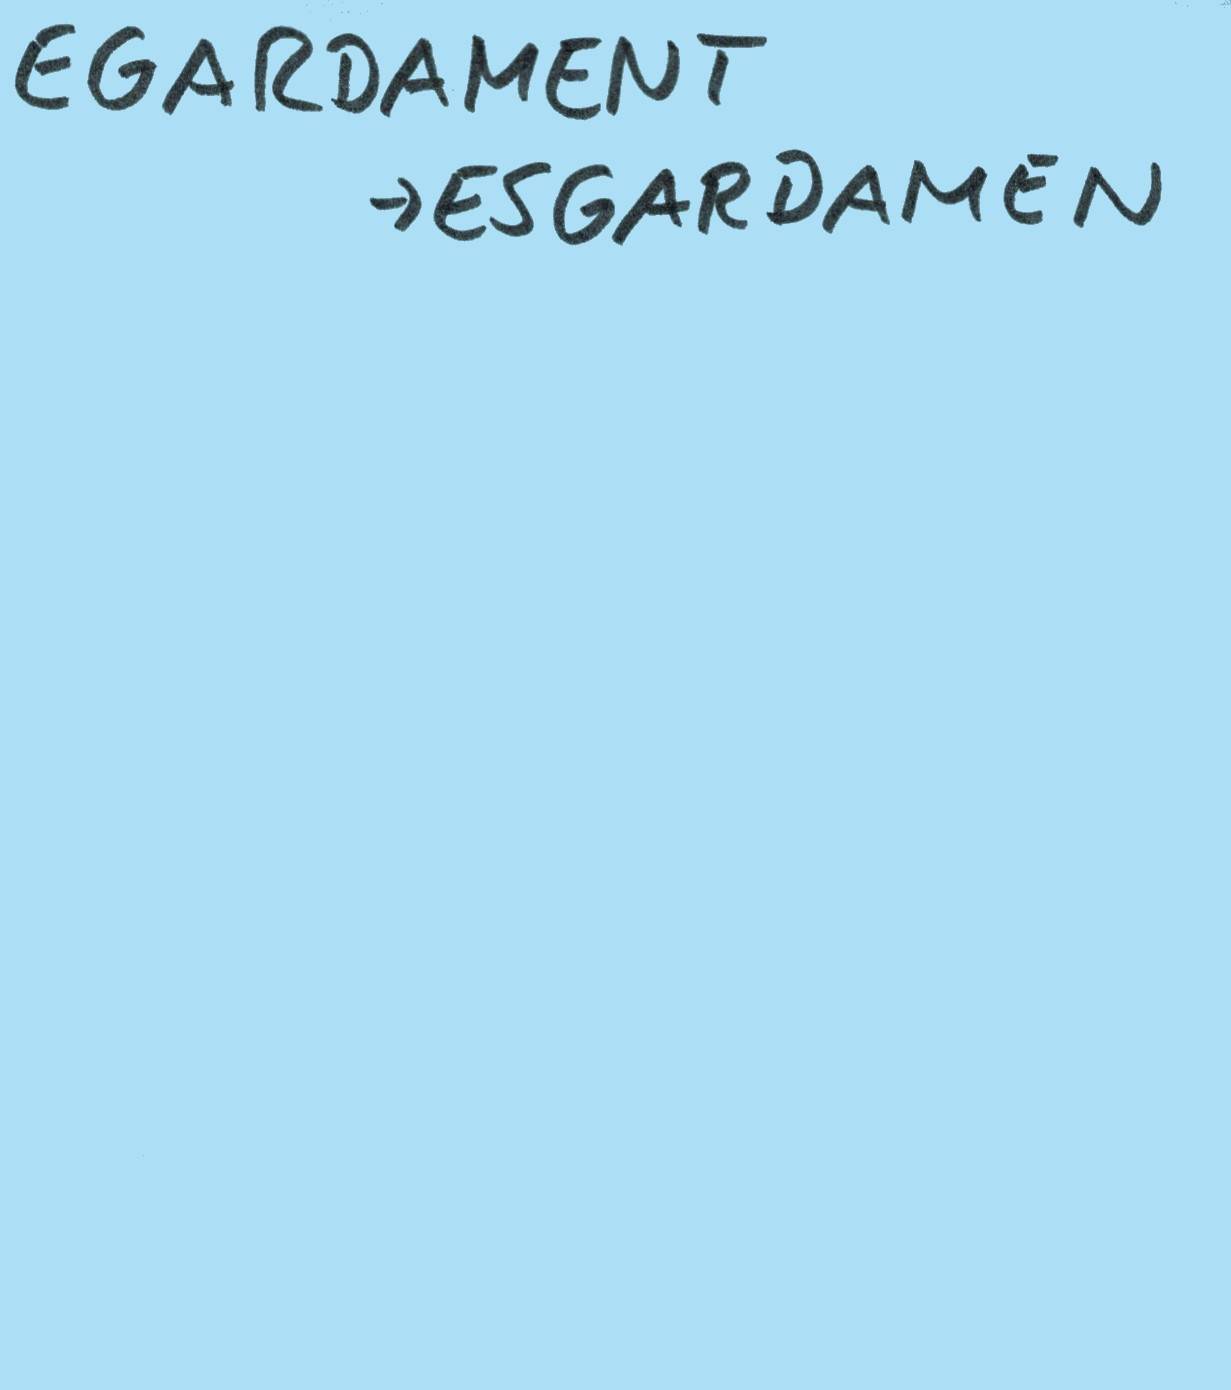 EGARDAMENT
→ESGARDAMEN